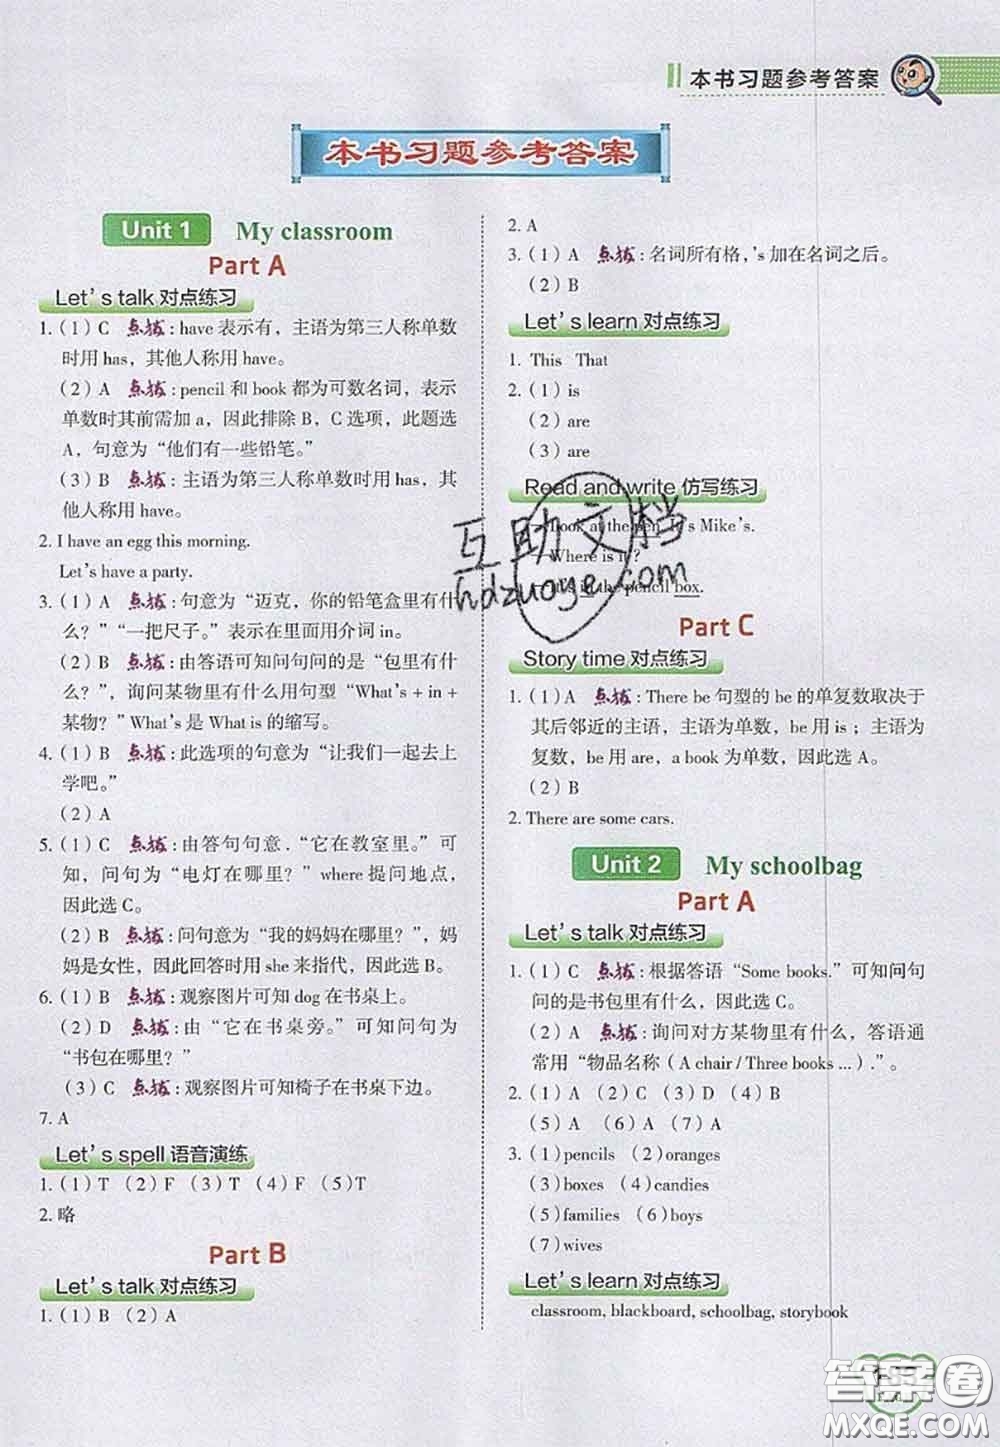 本书习题参考答案
本书习题参考答案
Unit 1 My classroom
Part A
Let's talk 对点练习
1. (1) C 点拨: have 表示有，主语为第三人称单数
时用 has, 其他人称用 have。
(2) A 点拨: pencil 和 book 都为可数名词，表示
单数时其前需加 a，因此排除 B、C 选项，此题选
A，句意为“他们有一些铅笔。”
(3) B 点拨: 主语为第三人称单数时用 has，其
他人称用 have。
2. I have an egg this morning.
Let's have a party.
3. (1) A 点拨: 句意为“迈克，你的铅笔盒里有什
么？”“一把尺子。”表示在里面用介词 in。
(2) B 点拨: 由答语可知问句问的是“包里有什
么？”，询问某物里有什么用句型“What's + in +
某物？”What's 是 What is 的缩写。
4. (1) B 点拨: 此选项的句意为“让我们一起去上
学吧。”
(2) A
5. (1) C 点拨: 由答句句意.“它在教室里。”可
知，问句为“电灯在哪里？”where 提问地点，
因此选 C。
(2) B 点拨: 问句意为“我的妈妈在哪里？”，妈
妈是女性，因此回答时用 she 来指代，因此选 B。
6. (1) B 点拨: 观察图片可知 dog 在书桌上。
(2) D 点拨: 由“它在书桌旁。”可知问句为
“书包在哪里？”
(3) C 点拨: 观察图片可知椅子在书桌下边。
7. A
Let's spell 语音演练
1. (1) T (2) F (3) T (4) F (5) T
2. 略
Part B
Let's talk 对点练习
1. (1) B (2) A
2. A
3. (1) A 点拨: 名词所有格，'s 加在名词之后。
(2) B
Let's learn 对点练习
1. This That
2. (1) is
(2) are
(3) are
Read and write 仿写练习
—Look at the pen. It's Mike's.
—Where is it?
—It's in the pencil box.
Part C
Story time 对点练习
1. (1) A 点拨: There be 句型的 be 的单复数取决于
其后邻近的主语，主语为单数，be 用 is；主语为
复数，be 用 are, a book 为单数，因此选 A。
(2) B
2. There are some cars.
Unit 2 My schoolbag
Part A
Let's talk 对点练习
1. (1) C 点拨: 根据答语“Some books.”可知问句
问的是书包里有什么，因此选 C。
(2) A 点拨: 询问对方某物里有什么，答语通
常用“物品名称 (A chair / Three books ...) .”。
2. (1) A (2) C (3) D (4) B
(5) A (6) A (7) A
3. (1) pencils (2) oranges
(3) boxes (4) candies
(5) families (6) boys
(7) wives
Let's learn 对点练习
classroom, blackboard, schoolbag, storybook
互助文档
hdzuoye.com
答案卷
MXQE.COM